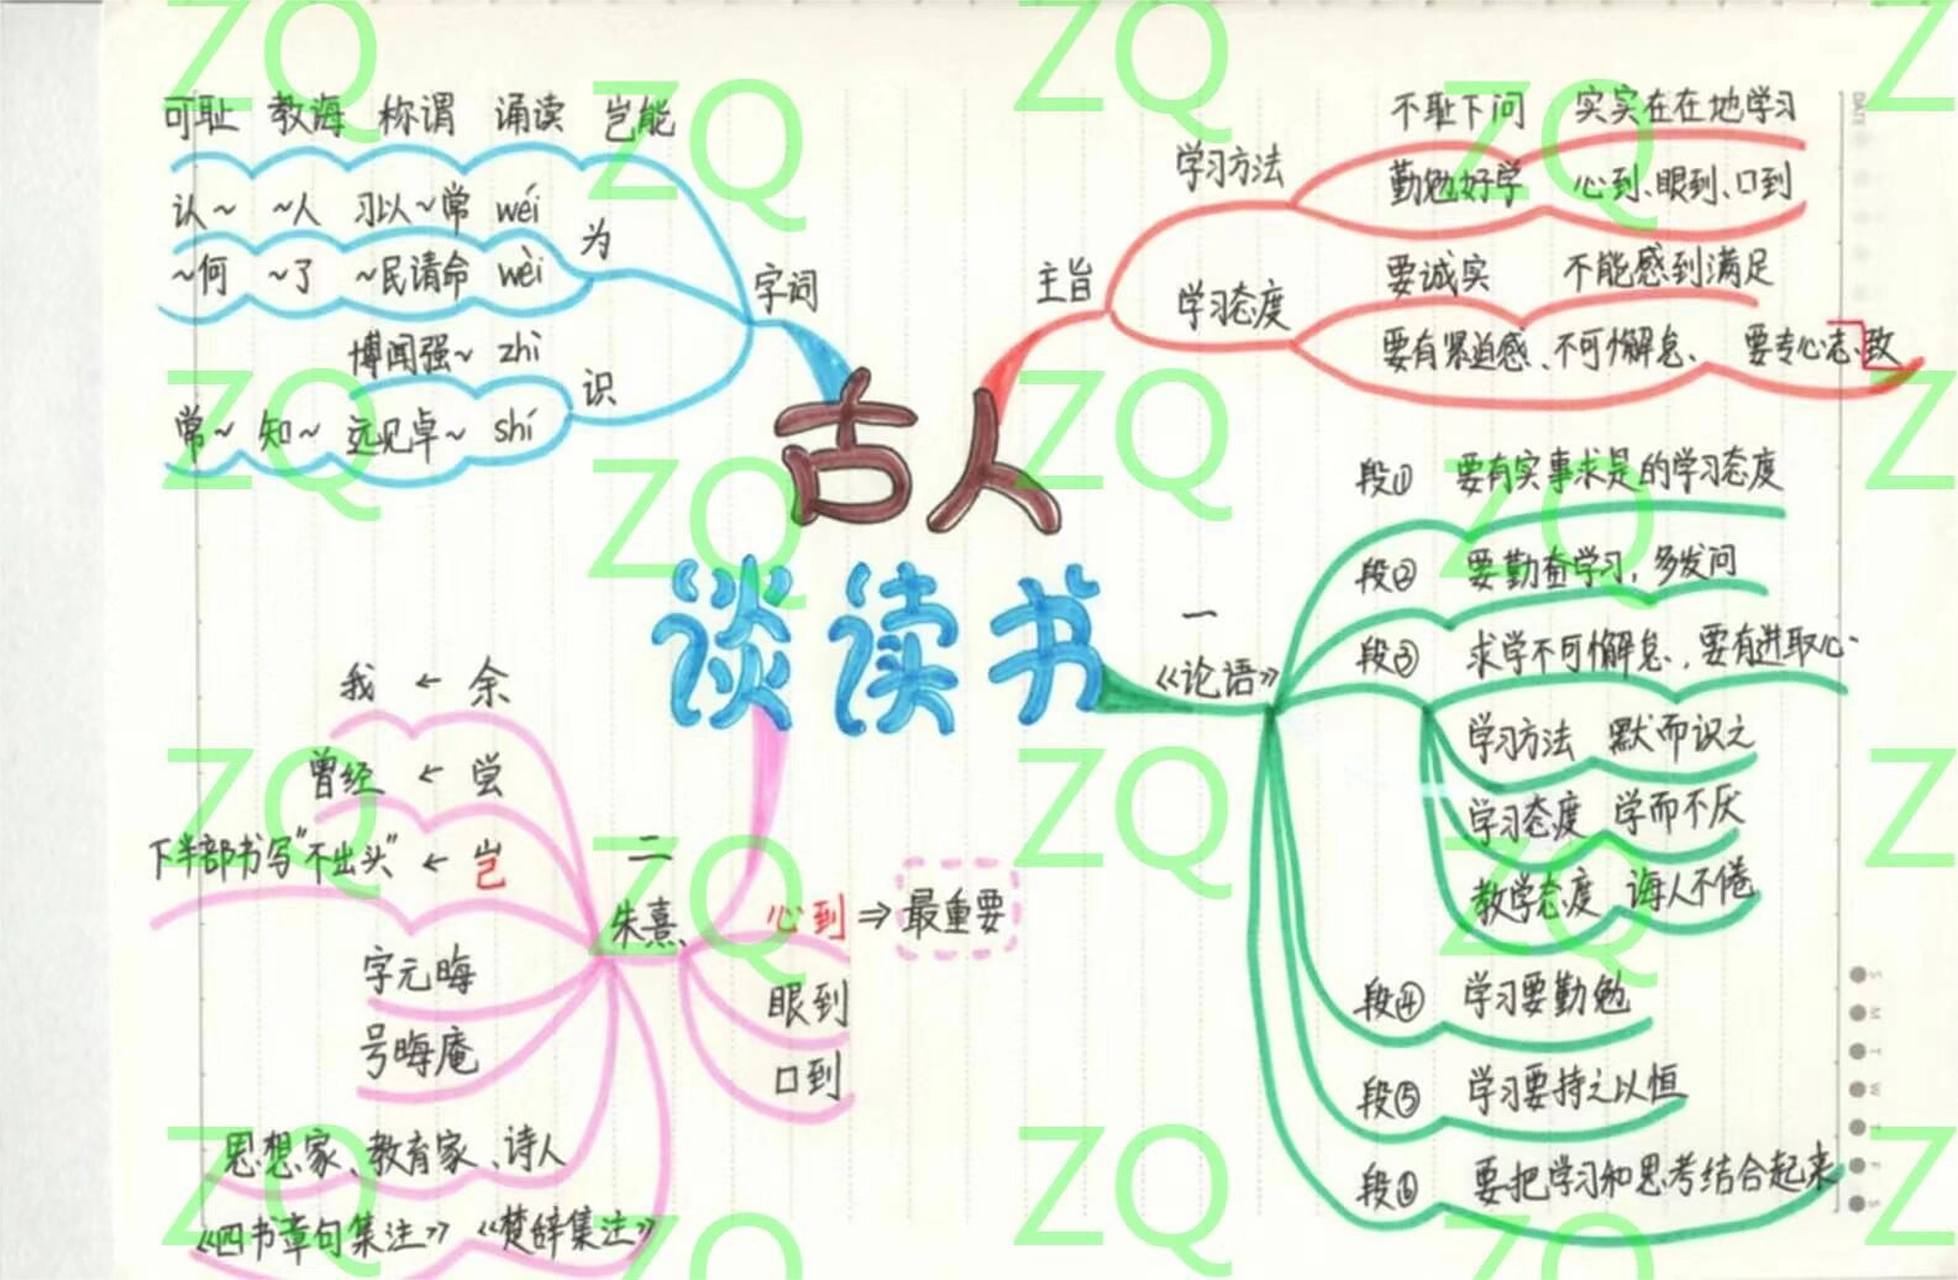 古人
谈读书
字词
可耻 教诲 称谓 诵读 岂能
为
认~ ~人 习以~常 wéi
~何 ~了 ~民请命 wèi
识
博闻强~ zhì
常~ 知~ 远见卓~ shí
主旨
学习方法
不耻下问 实实在在地学习
勤勉好学 心到、眼到、口到
学习态度
要诚实 不能感到满足
要有紧迫感、不可懈怠、 要专心志致
一
《论语》
段① 要有实事求是的学习态度
段② 要勤奋学习,多发问
段③ 求学不可懈怠,要有进取心
学习方法 默而识之
学习态度 学而不厌
教学态度 诲人不倦
段④ 学习要勤勉
段⑤ 学习要持之以恒
段⑥ 要把学习和思考结合起来
二
朱熹
我 ← 余
曾经 ← 尝
下半部书写"不出头" ← 岂
字元晦
号晦庵
思想家、教育家、诗人
《四书章句集注》 《楚辞集注》
心到 ⇒ 最重要
眼到
口到
DATE
S
M
T
W
T
F
S
ZQ